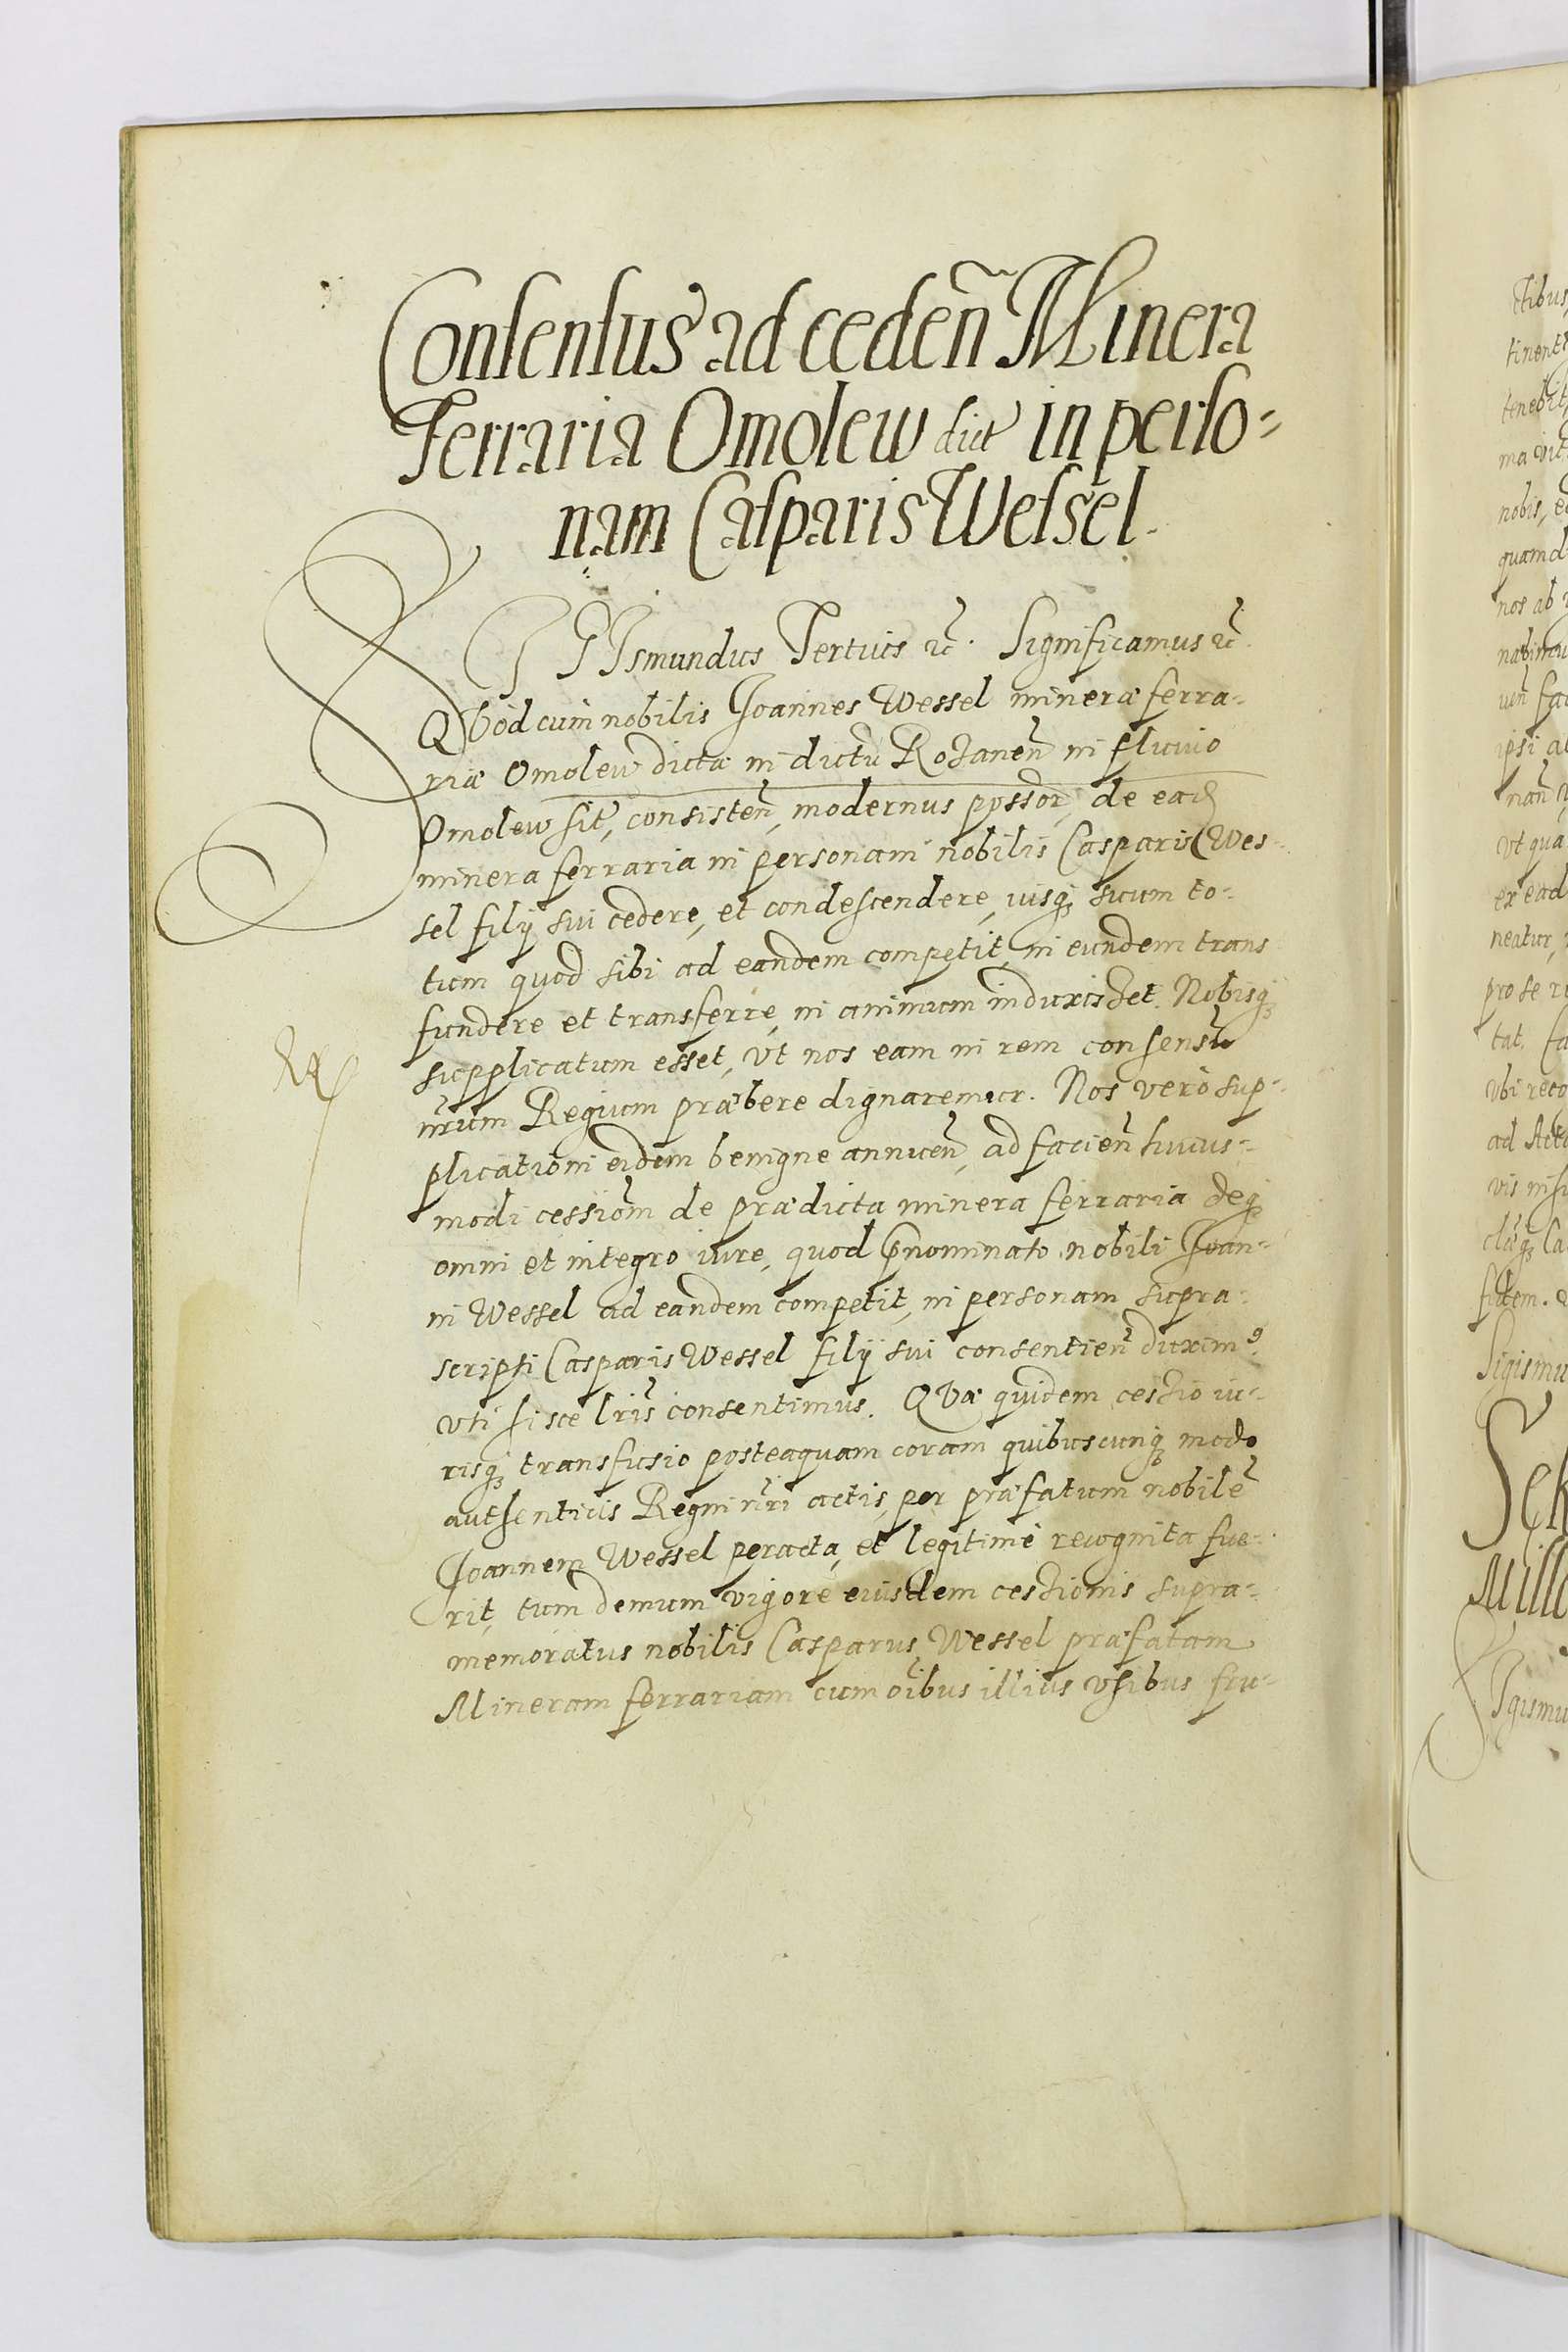 Consensus ad ceden̄ Minera
Ferraria Omolew dict in perso=
nam Casparis Wessel.
SIGIsmundus Tertius ꝛc̃. Significamus ꝛc̃.
QVod cum nobilis Joannes Wessel mineræ ferra-
riæ Omolew dictæ in dictu Rozanen̄ in fluvio
Omolew sit, consisten̄, modernus possor, de ead
minera ferraria in personam nobilis Casparis Wes-
sel filij sui cedere, et condescendere, iusq; suum to-
tum quod sibi ad eandem competit, in eundem trans
fundere et transferre, in animum induxisset. Nobisq;
supplicatum esset, Vt nos eam in rem consensũ
nr̃um Regium præbere dignaremur. Nos verò sup-
plicationi eidem benigne annuen̄, ad facien̄ huius-
modi cession̄ de prædicta minera ferraria deq;
omni et integro iure, quod p̃nominato nobili Joan-
ni Wessel ad eandem competit, in personam supra-
scripti Casparis Wessel filij sui consentien̄ duxim9
vti hisce lr̃is consentimus. QVæ quidem cessio iu-
risq; transfusio posteaquam coram quibuscunq; modo
authenticis Regni nr̃i actis, per præfatum nobilẽ
Joannem Wessel peracta, et legitime recognita fue-
rit, tum demum vigore eiusdem cessionis supra-
memoratus nobilis Casparus Wessel præfatam
Mineram ferrariam cum oĩbus illius vsibus fru-
tibus,
tinenti
tenebit
ma vit
nobis, e
quamd
nos ab
ipsi a
nan̄
vt qua
ex ead
neatur,
pro se
tat. Ca
vbi reco
ad Acta
fidem.
Sigismu